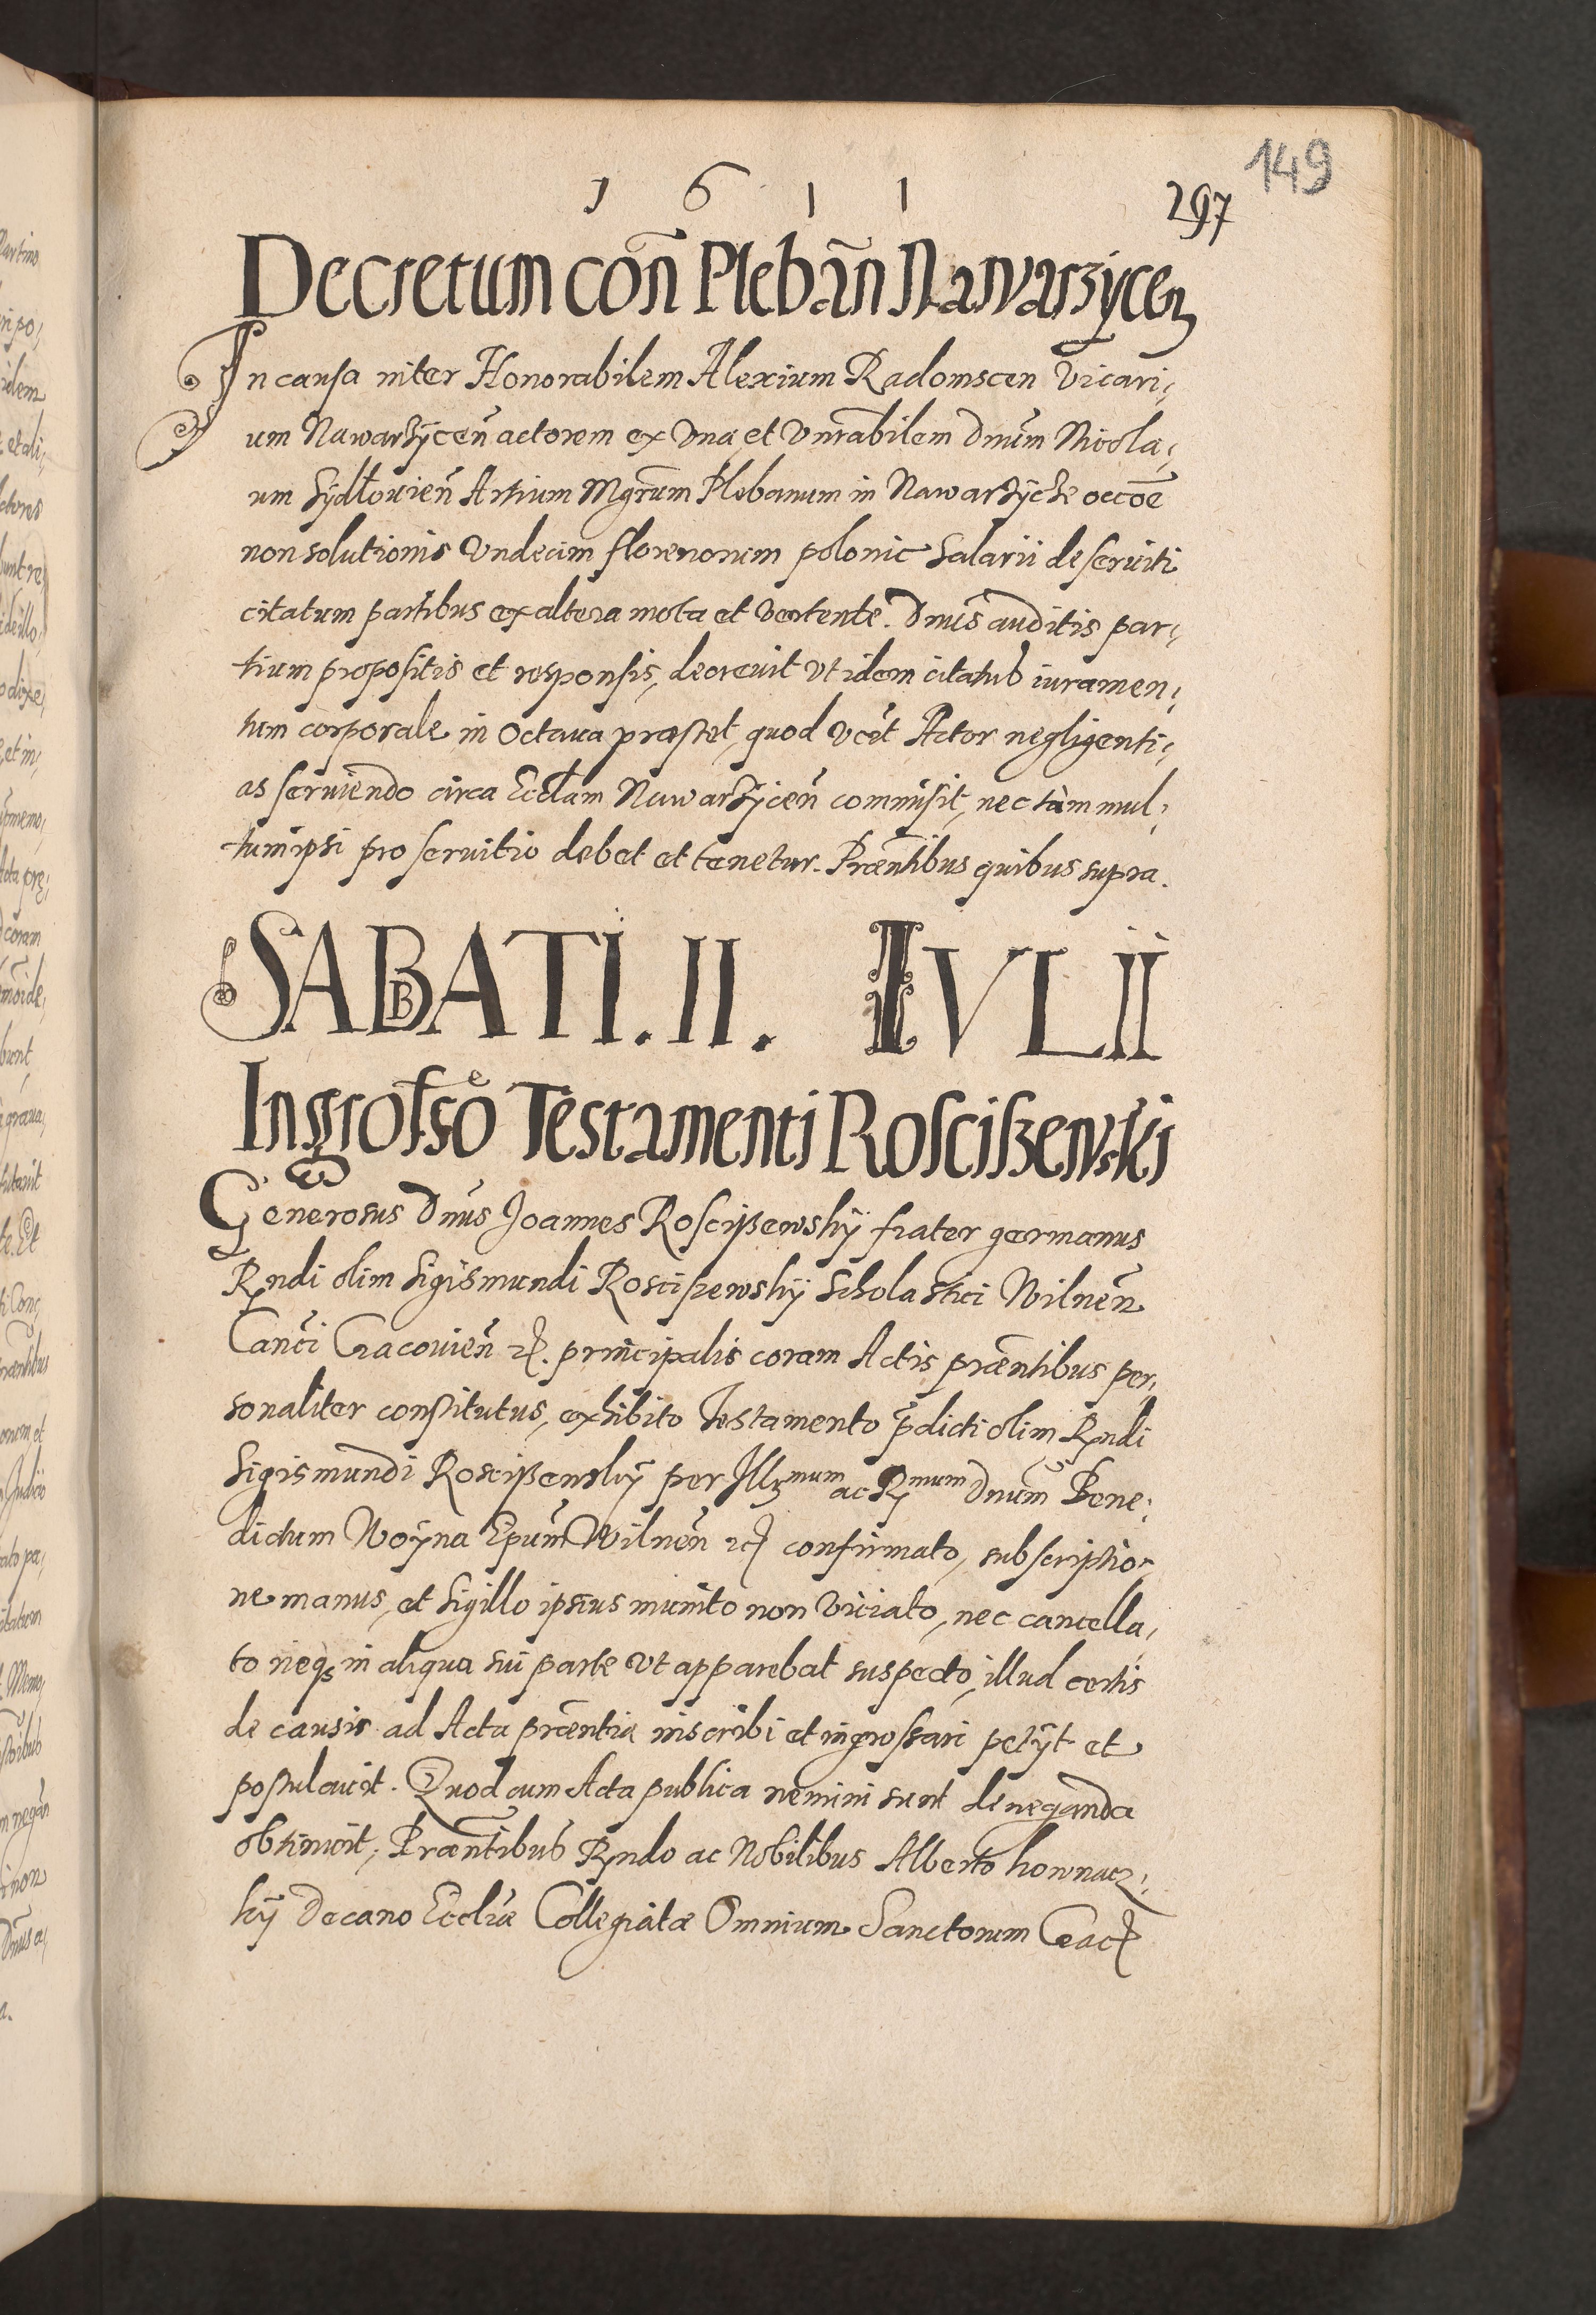 149
1 6 1 1
297
Decretum con̄ Plebān Nawarzycen
In causa inter Honorabilem Alexium Radomscen Vicari¿
um Nawarzÿcen̄ actorem ex Vna, et Vnrābilem Dnūm Nicola¿
um Sÿdłouien̄ Artium Mgrūm Plebanum in Nawarzÿcze occōe
non solutionis Vndecim florenorum polonic Salarii deseruiti
citatum partibus ex altera mota et vertente. Dnūs auditis par¿
tium propositis et responsis, decreuit vt idem citatus iuramen¿
tum corporale in Octaua præstet, quod vt Actor negligenti¿
as seruiendo circa Eccłam Nawarzÿcen̄ commisit, nec tàm mul¿
tum ipsi pro seruitio debet et tenetur. Præntibus quibus supra.
SABBATI. II. IVLII
Ingrosso Testamenti Roscißewski
Generosus Dnūs Joannes Roscißewskÿ frater germanus
Rndi olim Sigismundi Roscißewskÿ Scholastici Wilnen̄
Canci Cracouien̄ etc. principalis coram Actis præntibus per¿
sonaliter constitutus, exhibito Testamento p̄dicti olim Rndi
Sigismundi Roscißewskÿ per Illmum ac Rmum Dnūm Bene¿
dictum Woÿna Epūm Wilnen̄ etc confirmato, subscriptio¿
ne manus, et Sigillo ipsius munito non viciato, nec cancella¿
to neqȝ in aliqua sui parte vt apparebat suspecto, illud certis
de causis ad Acta præntia inscribi et ingrossari petÿt et
postulauit. Quod cum Acta publica nemini sunt deneganda
obtinuit, Præntibus Rndo ac Nobilibus Alberto
kÿ Decano Eccliæ Collegiatæ Omnium Sanctorum Crac